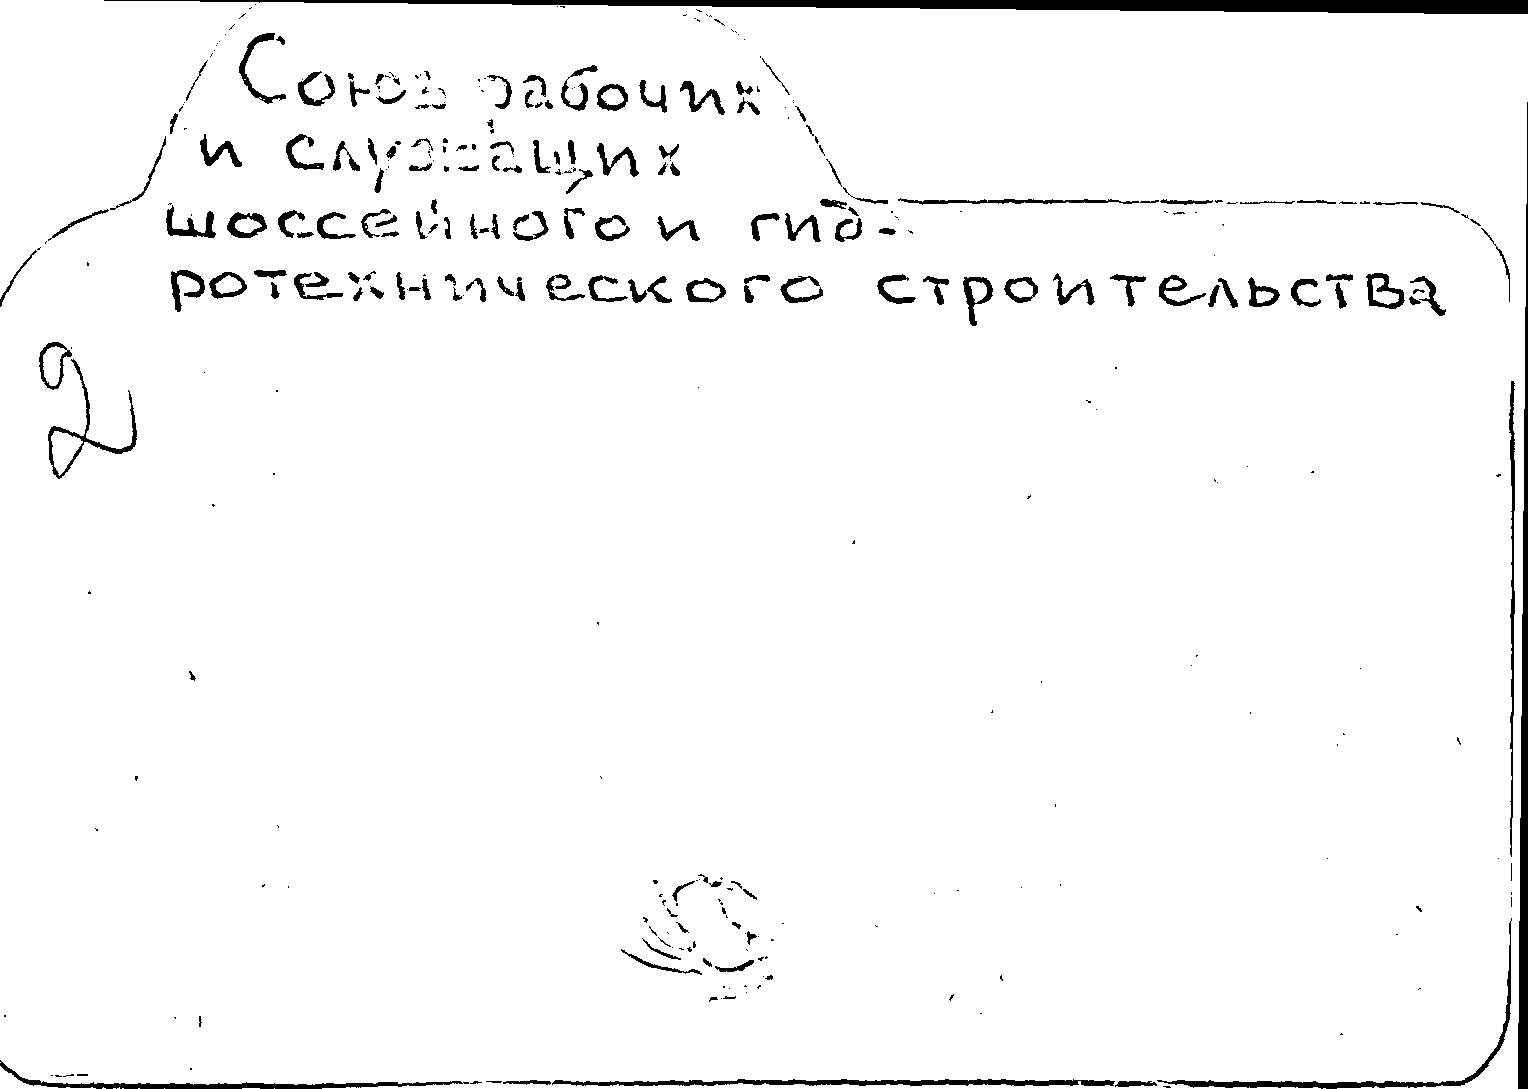 Союз рабочих
и служащих
шоссейного и гид-
ротехнического строительства
2